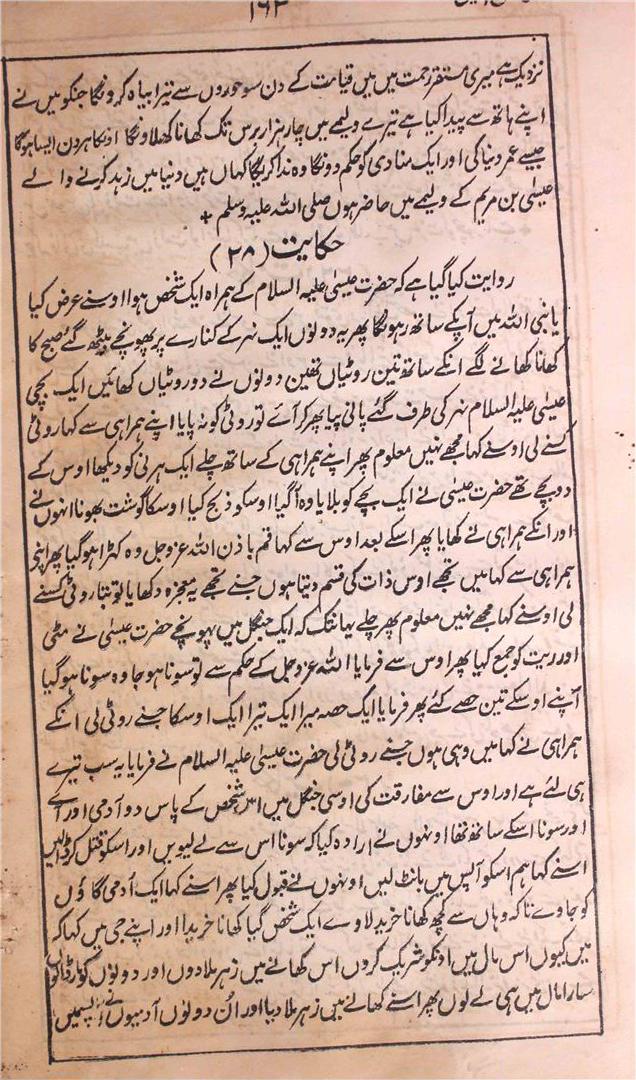 ۱۶۲
نزدیک ہے میری مستقر رحمت میں میں قیامت کے دن سو حوروں سے تیرا بیاہ کرونگا جنکو میں نے
اپنے ہاتھ سے پیدا کیا ہے تیرے ولیمے میں چار ہزار برس تک کھانا کھلاونگا اونکا ہر دن ایسا ہوگا
جیسے عمر دنیا کی اور ایک منادی کو حکم دونگا وہ ندا کریگا کہاں ہیں دنیا میں زہد کرنے والے
عیسٰی بن مریم کے ولیمے میں حاضر ہوں صلی اللہ علیہ وسلم +
حکایت (۲۸)
روایت کیا گیا ہے کہ حضرت عیسٰی علیہ السلام کے ہمراہ ایک شخص ہوا اوسنے عرض کیا
یا نبی اللہ میں آپکے ساتھ رہونگا پھر یہ دونوں ایک نہر کے کنارے پر پھونچے بیٹھ گئے صبح کا
کھانا کھانے لگے انکے ساتھ تین روٹیاں تھین دونوں نے دو روٹیاں کھائیں ایک بچی
عیسٰی علیہ السلام نہر کی طرف گئے پانی پیا پھر کر آئے تو روٹی کو نہ پایا اپنے ہمراہی سے کہا روٹی
کسنے لی اوسنے کہا مجھے نہیں معلوم پھر اپنے ہمراہی کے ساتھ چلے ایک ہرنی کو دیکھا اوس کے
دو بچے تھے حضرت عیسٰی نے ایک بچے کو بلایا وہ آگیا اوسکو ذبح کیا اوسکا گوشت بھونا انہوں نے
اور انکے ہمراہی نے کھایا پھر اسکے بعد اوس سے کہا قم باذن اللہ عزوجل وہ کھڑا ہوگیا پھر اپنے
ہمراہی سے کہا میں تجھے اوس ذات کی قسم دیتا ہوں جسنے تجھے یہ معجزہ دکھایا تو بتا روٹی کسنے
لی اوسنے کہا مجھے نہیں معلوم پھر چلے یہانتک کہ ایک جنگل میں پہونچے حضرت عیسٰی نے مٹی
اور ریت کو جمع کیا پھر اوس سے فرمایا اللہ عزوجل کے حکم سے تو سونا ہوجا وہ سونا ہوگیا
آپنے اوسکے تین حصے کئے پھر فرمایا ایک حصہ میرا ایک تیرا ایک اوسکا جسنے روٹی لی انکے
ہمراہی نے کہا میں وہی ہوں جسنے روٹی لی حضرت عیسٰی علیہ السلام نے فرمایا یہ سب تیرے
ہی لئے ہے اور اوس سے مفارقت کی اوسی جنگل میں اس شخص کے پاس دو آدمی اور آے
اور سونا اسکے ساتھ تھا اونہوں نے ارادہ کیا کہ سونا اس سے لے لیویں اور اسکو قتل کر ڈالیں
اسنے کہا ہم اسکو آپس میں بانٹ لیں اونہوں نے قبول کیا پھر اسنے کہا ایک آدمی گاؤں
کو جاوے تاکہ وہاں سے کچھ کھانا خرید لاوے ایک شخص گیا کھانا خریدا اور اپنے جی میں کہا کہ
میں کیوں اس مال میں اونکو شریک کروں اس کھانے میں زہر ملادوں اور دونوں کو مار ڈالوں
سارا مال میں ہی لے لوں پھر اسنے کھانے میں زہر ملا دیا اور اُن دونوں آدمیوں نے آپسمیں